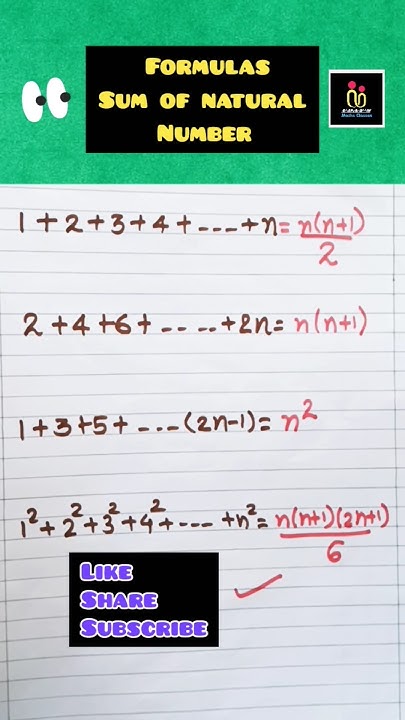 FORMULAS
SUM OF NATURAL
NUMBER
Maths Classes
1 + 2 + 3 + 4 + ---- + n = n(n+1)/2
2 + 4 + 6 + -- -- + 2n = n(n+1)
1 + 3 + 5 + ---- (2n-1) = n²
1² + 2² + 3² + 4² + ---- + n² = n(n+1)(2n+1)/6
LIKE
SHARE
SUBSCRIBE